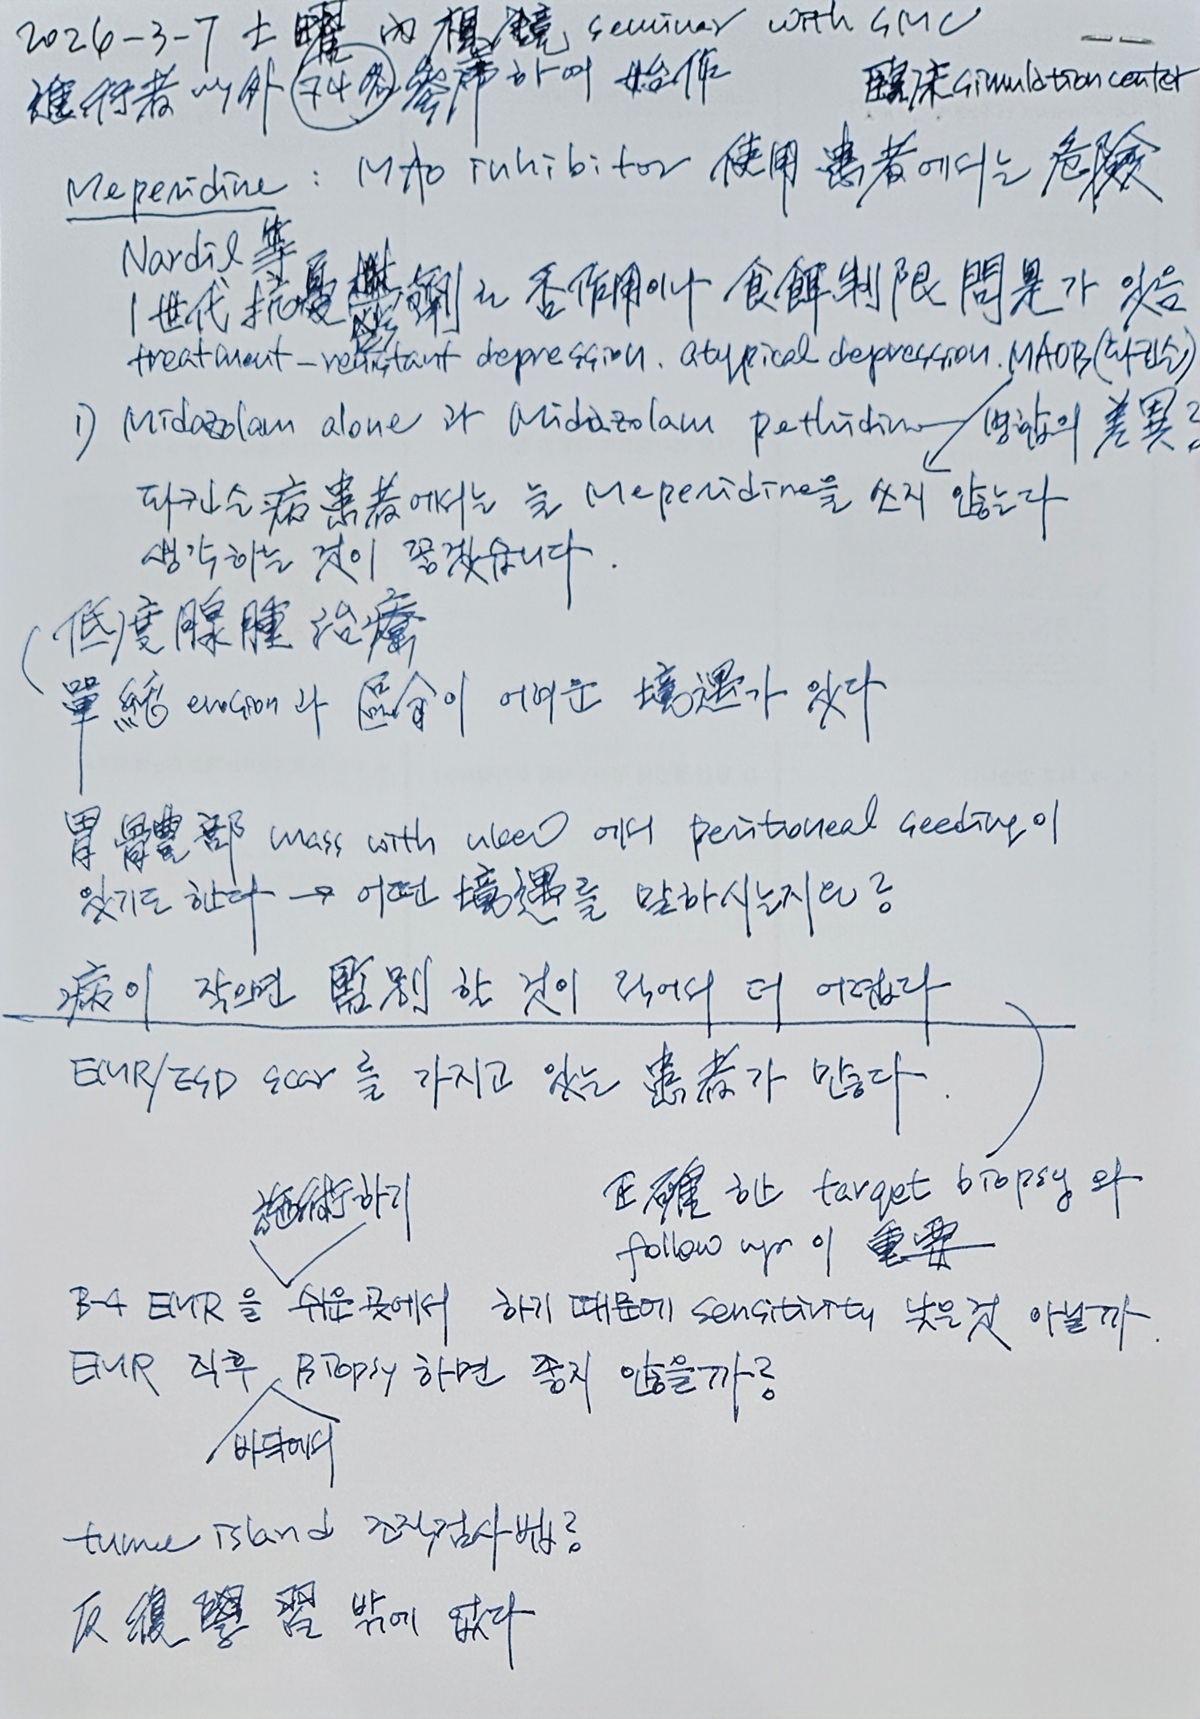 2026-3-7 土曜 內視鏡 seminar with SMC
進行者 以外 74名 參席하여 始作 臨床 simulation center
Meperidine : MAO inhibitor 使用 患者에서는 危險
Nardil 等
1世代 抗憂鬱劑로 副作用이나 食餌制限 問題가 있음
treatment-resistant depression. atypical depression. MAOB(파킨슨)
1) Midazolam alone 과 Midazolam pethidine 병합의 差異?
파킨슨病患者에서는 늘 Meperidine을 쓰지 않는다
생각하는 것이 좋겠습니다.
低度腺腫 治療
單純 erosion과 區分이 어려운 境遇가 있다
胃 體部 mass with ulcer 에서 peritoneal seeding이
있기도 한다 → 어떤 境遇를 말하시는지요?
病이 작으면 鑑別할 것이 많어서 더 어렵다
EMR/ESD scar를 가지고 있는 患者가 많다.
正確한 target biopsy와
follow up이 重要
施術하기
B-4 EMR을 쉬운 곳에서 하기 때문에 sensitivity 낮은 것 아닐까.
EMR 직후 Biopsy 하면 좋지 않을까?
바닥에서
tumor island 조직검사법?
反復學習 밖에 없다